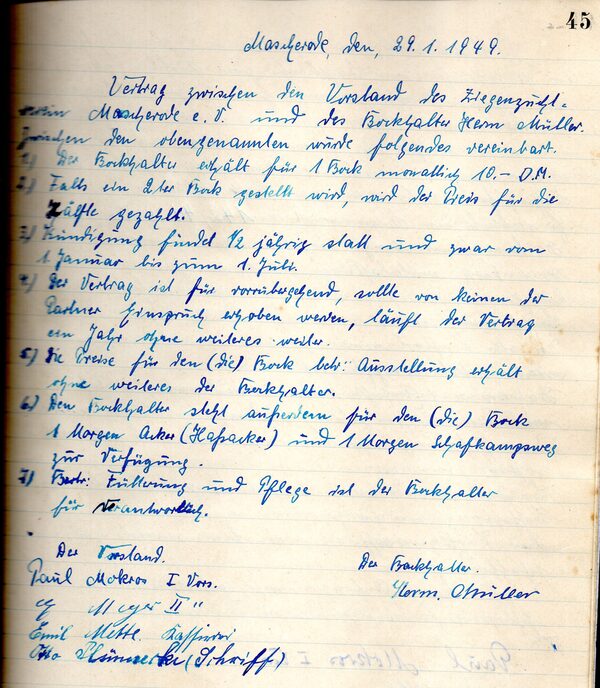 45
Mascherode, den, 29.1.1949.
Vertrag zwischen den Vorstand des Ziegenzucht-
verein Mascherode e.V. und des Bockhalter Herm Müller.
Zwischen den obengenannten wurde folgendes vereinbart.
1.) Der Bockhalter erhält für 1 Bock monatlich 10.- D.M.
2.) Falls ein 2ter Bock gestellt wird, wird der Preis für die
Hälfte gezahlt.
3.) Kündigung findet 1/2 jährig statt und zwar vom
1 Januar bis zum 1. Juli.
4.) Der Vertrag ist für vorrübergehend, sollte von keinen der
Partner Einspruch erhoben werden, läuft der Vertrag
ein Jahr ohne weiteres weiter.
5.) Die Preise für den (die) Bock betr: Ausstellung erhält
ohne weiteres der Bockhalter.
6.) Den Bockhalter steht außerdem für den (die) Bock
1 Morgen Acker (Hafsacker) und 1 Morgen Schafkampsweg
zur Verfügung.
7.) Betr: Fütterung und Pflege ist der Bockhalter
für verantworlich.
Der Vorstand.
Der Bockhalter.
Paul Mokros I Vors.
Herm. Müller
Meyer II "
Emil Mette. Kassierer
Otto (Schriff)